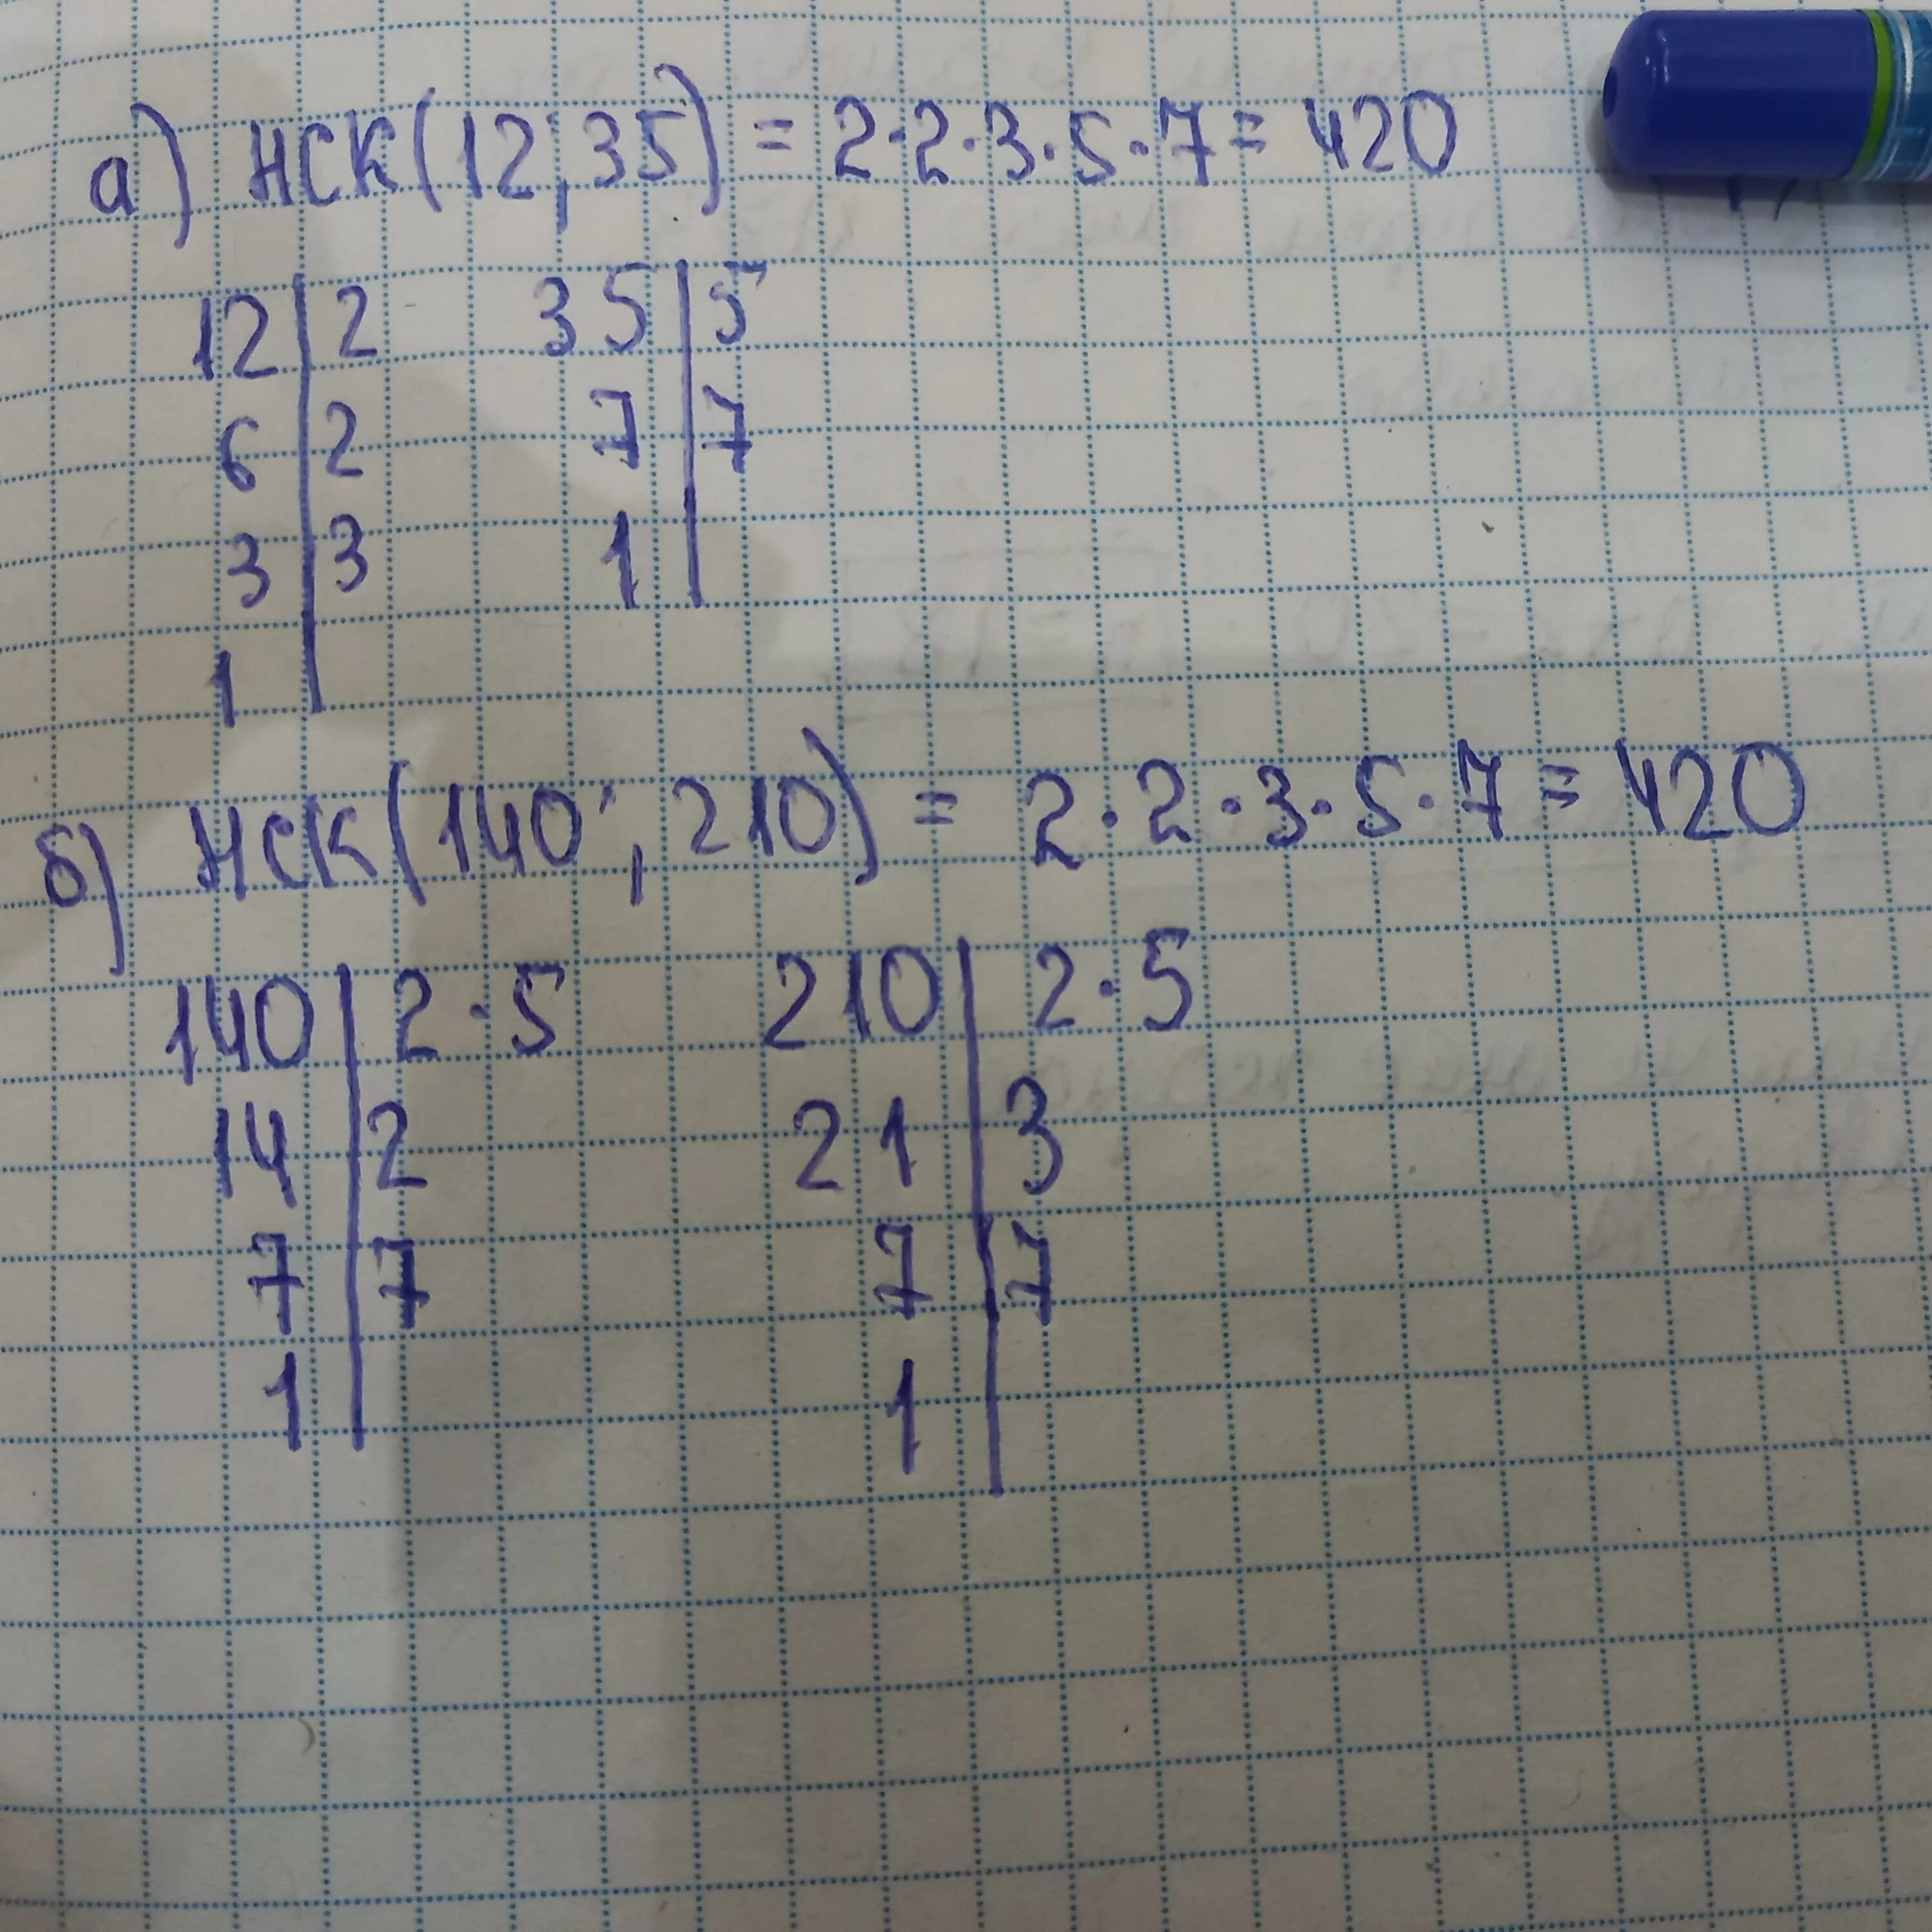 а) НСК(12;35) = 2·2·3·5·7 = 420
12 | 2 35 | 5
6 | 2 7 | 7
3 | 3 1 |
1 |
б) НСК(140;210) = 2·2·3·5·7 = 420
140 | 2·5 210 | 2·5
14 | 2 21 | 3
7 | 7 7 | 7
1 | 1 |